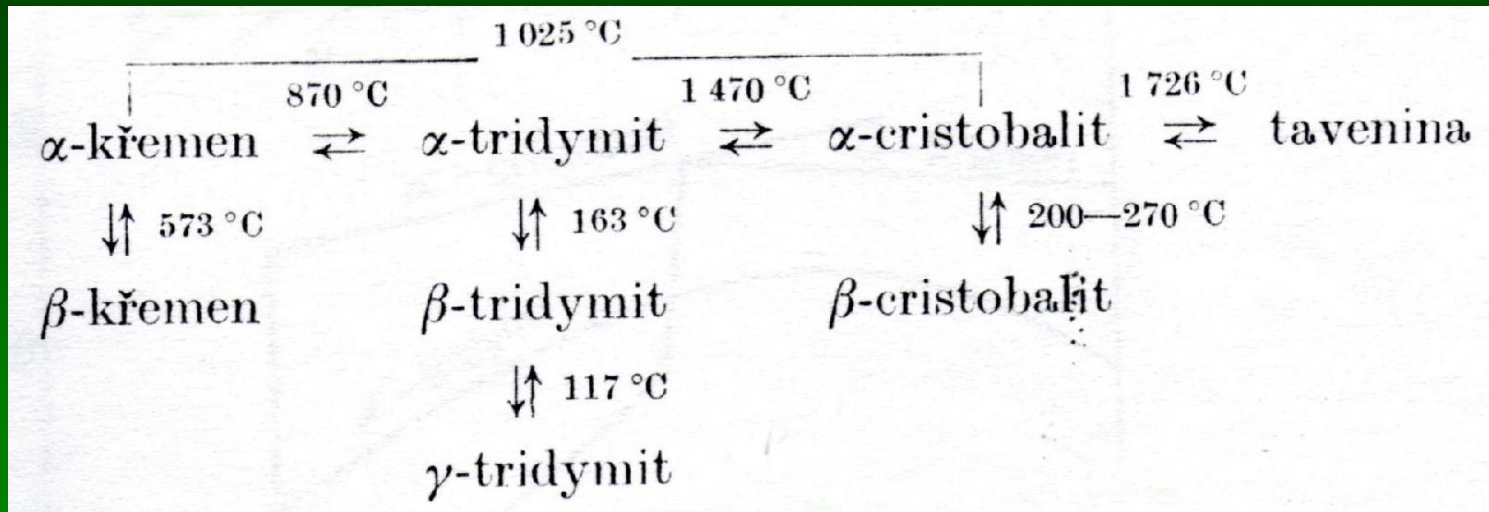 1 025 °C
870 °C 1 470 °C 1 726 °C
α-křemen ⇄ α-tridymit ⇄ α-cristobalit ⇄ tavenina
↓↑ 573 °C ↓↑ 163 °C ↓↑ 200—270 °C
β-křemen β-tridymit β-cristobalit
↓↑ 117 °C
γ-tridymit